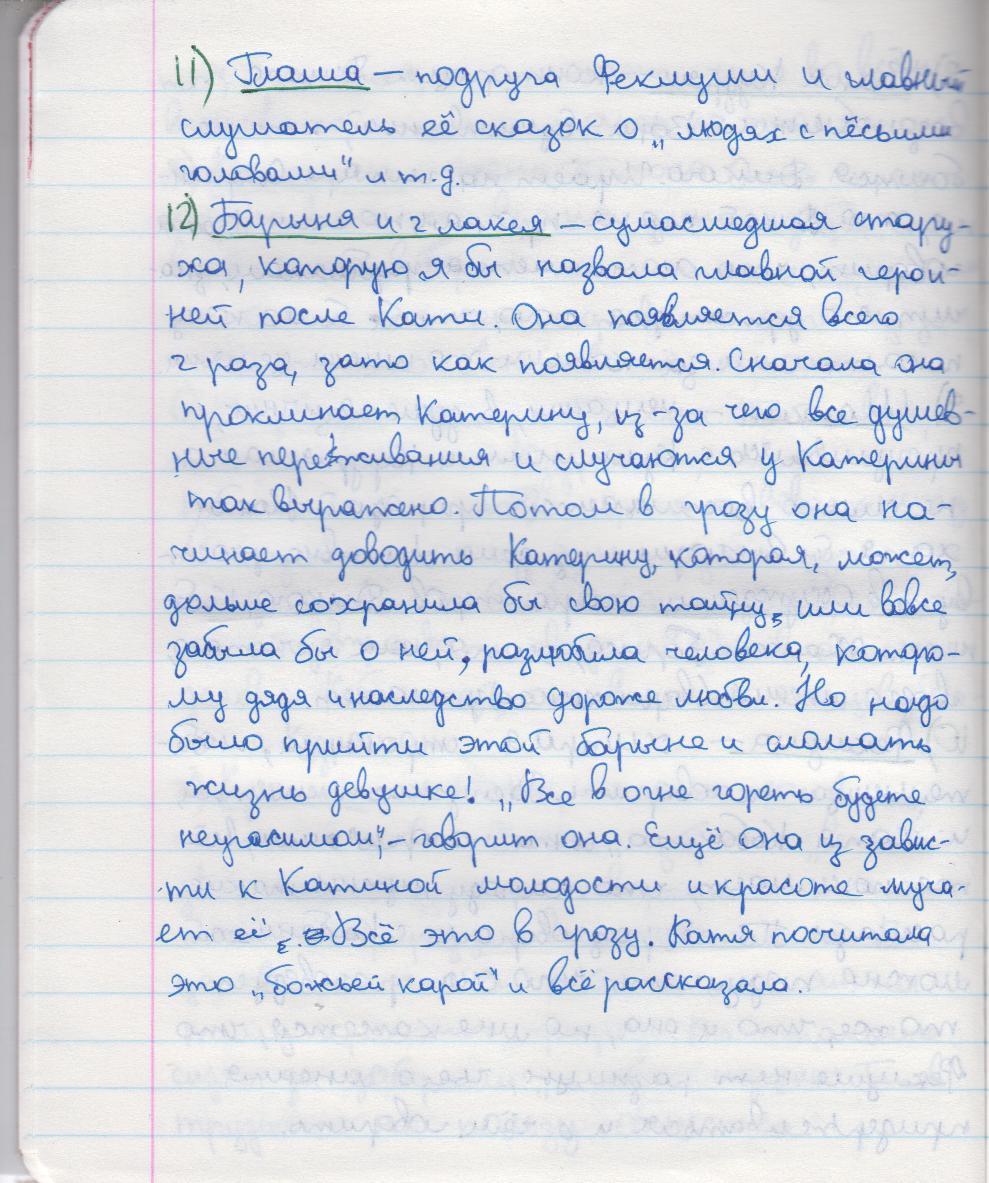 11) Глаша – подруга Феклуши и главный
слушатель её сказок о „людях с пёсьими
головами“ и т.д.
12) Барыня и 2 лакея – сумасшедшая стару-
ха, которую я бы назвала главной герой-
ней после Кати. Она появляется всего
2 раза, зато как появляется. Сначала она
проклинает Катерину, из-за чего все душев-
ные переживания и случаются у Катерины
так выражено. Потом в грозу она на-
чинает доводить Катерину, которая, может,
дольше сохранила бы свою тайну, или вовсе
забыла бы о ней, разлюбила человека, которо-
му дядя и наследство дороже любви. Но надо
было прийти этой барыне и сломать
жизнь девушке! „Все в огне гореть будете
неугасимом“, – говорит она. Ещё она из завис-
ти к Катиной молодости и красоте муча-
ет её. Всё это в грозу. Катя посчитала
это „божьей карой“ и всё рассказала.